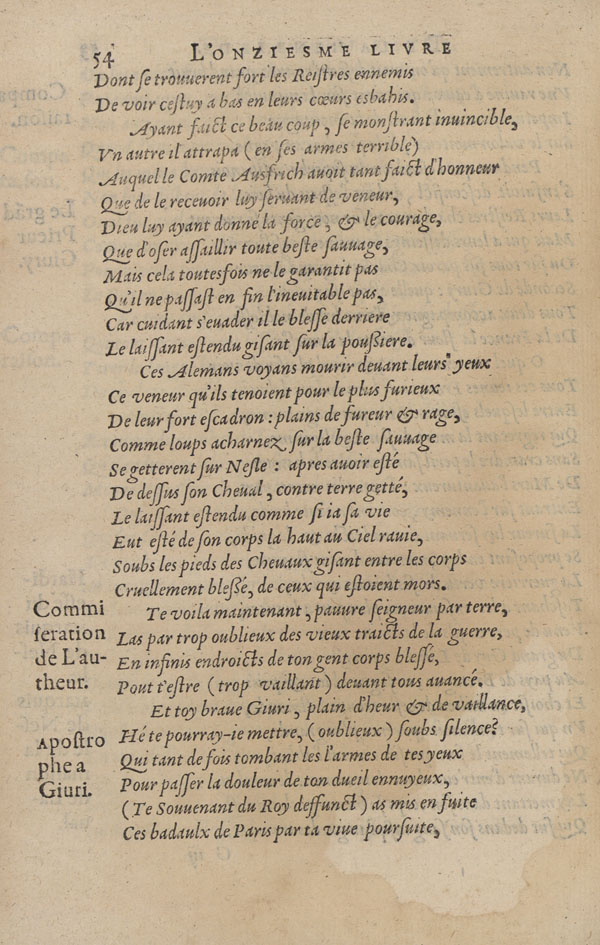 54 L'ONZIESME LIVRE
Dont se trouuerent fort les Reistres ennemis
De voir cestuy a bas en leurs cœurs esbahis.
Ayant faict ce beau coup, se monstrant inuincible,
Vn autre il attrapa (en ses armes terrible)
Auquel le Comte Ausfrich auoit tant faict d'honneur
Que de le receuoir luy seruant de veneur,
Dieu luy ayant donné la force, & le courage,
Que d'oser assaillir toute beste sauuage,
Mais cela toutesfois ne le garantit pas
Qu'il ne passast en fin l'ineuitable pas,
Car cuidant s'euader il le blesse derriere
Le laissant estendu gisant sur la poussiere.
Ces Alemans voyans mourir deuant leurs yeux
Ce veneur qu'ils tenoient pour le plus furieux
De leur fort escadron : plains de fureur & rage,
Comme loups acharnez sur la beste sauuage
Se getterent sur Nesle : apres auoir esté
De dessus son Cheual, contre terre getté,
Le laissant estendu comme si ia sa vie
Eut esté de son corps la haut au Ciel rauie,
Soubs les pieds des Cheuaux gisant entre les corps
Cruellement blessé, de ceux qui estoient mors.
Commi
seration
de L'au-
theur.
Te voila maintenant, pauure seigneur par terre,
Las par trop oublieux des vieux traicts de la guerre,
En infinis endroicts de ton gent corps blessé,
Pout t'estre (trop vaillant) deuant tous auancé.
Et toy braue Giuri, plain d'heur & de vaillance,
Apostro
phe a
Giuri.
Hé te pourray-ie mettre, (oublieux) soubs silence?
Qui tant de fois tombant les l'armes de tes yeux
Pour passer la douleur de ton dueil ennuyeux,
(Te Souuenant du Roy deffunct) as mis en fuite
Ces badaulx de Paris par ta viue poursuite,